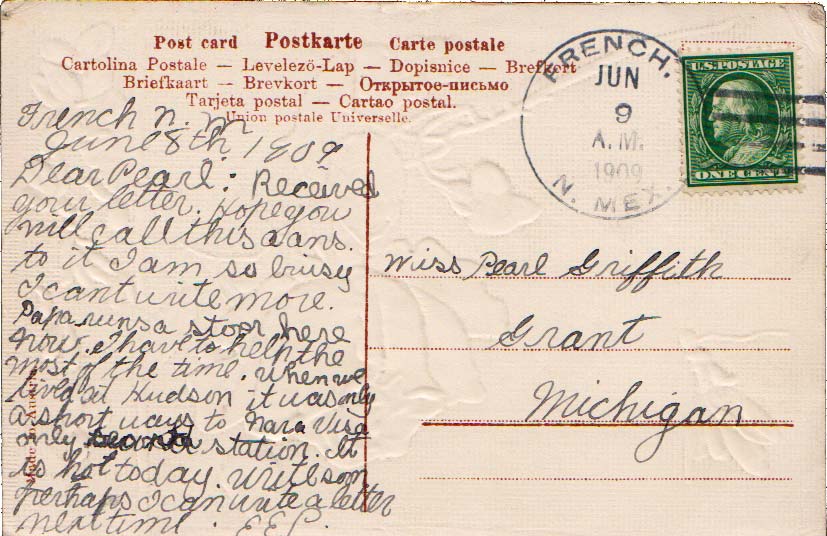 Post card Postkarte Carte postale
Cartolina Postale — Levelező-Lap — Dopisnice — Brefkort
Briefkaart — Brevkort — Открытое-письмо
Tarjeta postal — Cartao postal.
Union postale Universelle.
FRENCH.
JUN
9
A.M.
1909
N. MEX.
U.S. POSTAGE
ONE CENT
French N. M
June 8th 1909
Dear Pearl: Received
your letter. Hope you
will call this a ans.
to it I am so busy
I cant write more.
Papa runs a store here
now. I have to help the
most of the time. When we
lived at Hudson it was only
a short ways to Nara Visa
only station. It
is hot today. Write soon
perhaps I can write a letter
next time. E.E.P.
Miss Pearl Griffith
Grant
Michigan
Made in